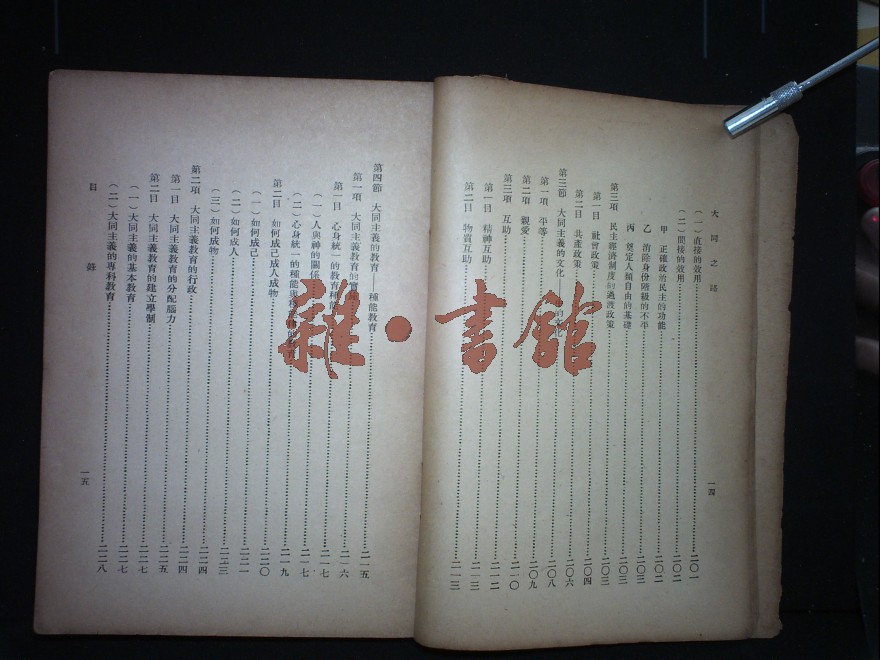 大同之路
一四
（一）直接的效用……二〇一
（二）間接的效用……二〇二
甲 正確政治民主的功能……二〇二
乙 消除身份階級的不平……二〇三
丙 奠定人類自由的基礎……二〇三
第三項 民主經濟制度的過渡政策……二〇三
第一目 社會政策……二〇四
第二目 共產政策……二〇六
第三節 大同主義的文化……二〇八
第一項 平等……二〇九
第二項 親愛……二一〇
第三項 互助……二一二
第一目 精神互助……二一三
第二目 物質互助……二一三
第四節 大同主義的教育——種能教育……二一五
第一項 大同主義教育的實……二一六
第一目 心身統一的教育種能……二一七
（一）人與神的關係……二一七
（二）心身統一的種能與……的教育……二一九
第二目 如何成己成人成物……二二〇
（一）如何成己……二二一
（二）如何成人……二二三
（三）如何成物……二二四
第二項 大同主義教育的行政……二二四
第一目 大同主義教育的分配腦力……二二五
第二目 大同主義教育的建立學制……二二七
（一）大同主義的基本教育……二二七
（二）大同主義的專科教育……二二八
目錄
一五
雜·書館